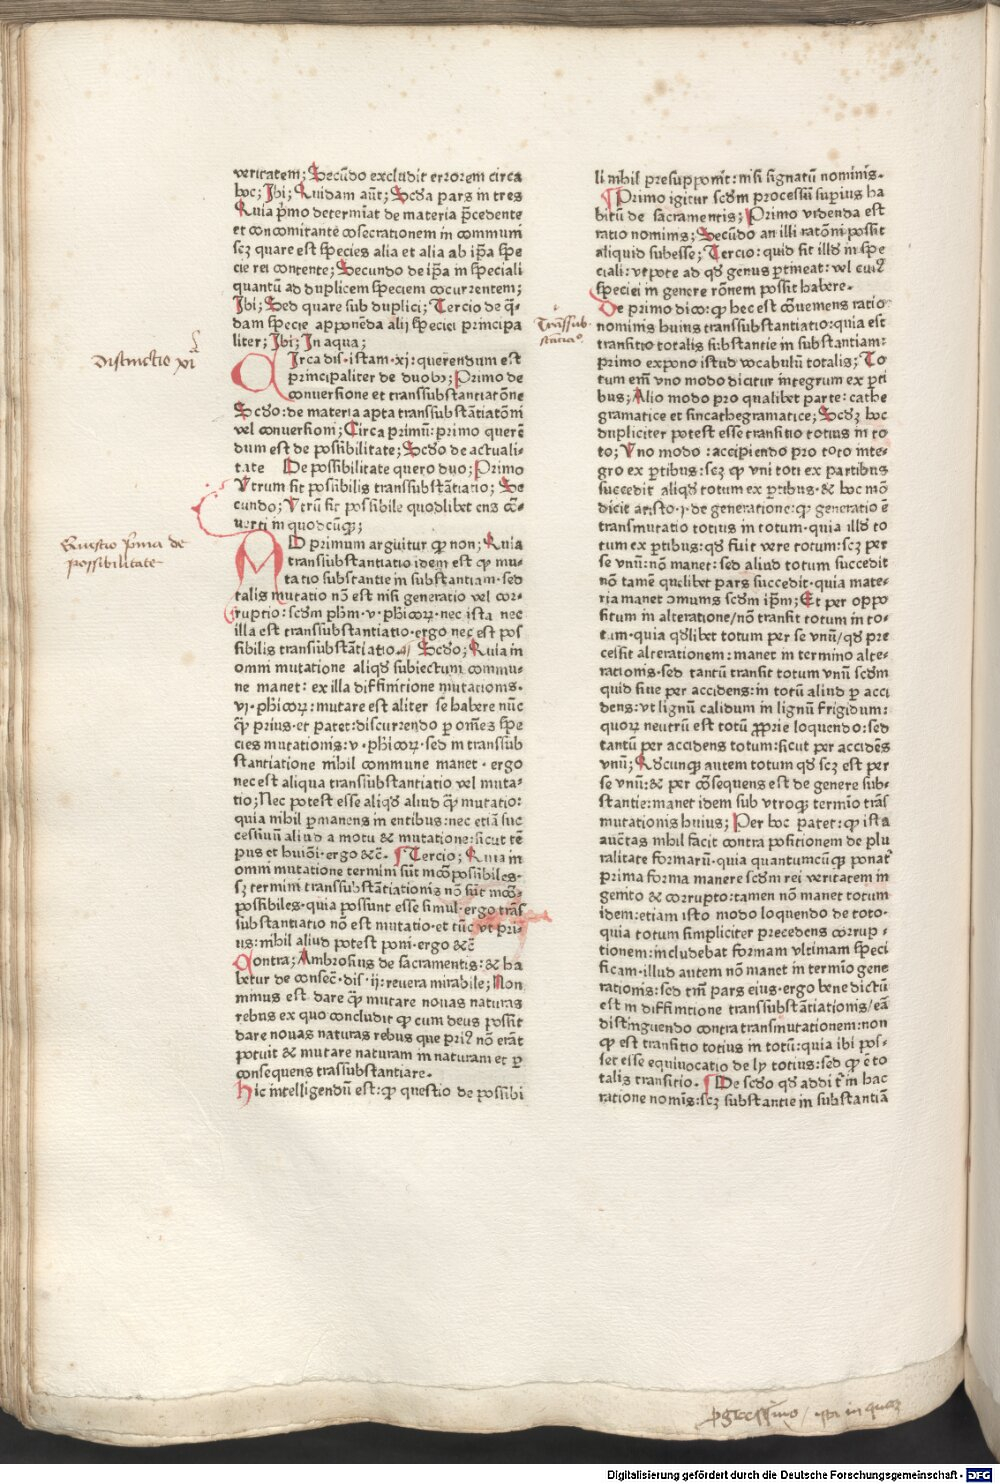 veritatem; Secūdo excludit errorem circa
hoc; Ibi; Quidam aūt; Scd̄a pars in tres
Quia p̄mo determīat de materia p̄cedente
et concomitante cōsecrationem in communi
scꝫ quare est species alia et alia ab ip̄a spe
cie rei contente; Secundo de ip̄a in speciali
quantū ad duplicem speciem cōcurrentem;
Ibi; Sed quare sub duplici; Tercio de q̄-
dam specie appōnēda alij speciei principa
liter; Ibi; In aqua;
Distinctio xi
CIrca dis· istam·xj: querendum est
principaliter de duobꝫ; Primo de
conuersione et transsubstantiatōne
Scd̄o: de materia apta transsubstātiatōni
vel conuersioni; Circa primū: primo querē
dum est de possibilitate; Scd̄o de actuali-
tate De possibilitate quero duo; Primo
Vtrum sit possibilis transsubstātiatio; Se
cundo; Vtrū sit possibile quodlibet ens cō-
uerti in quodcūqꝫ;
Questio p̄ma de
possibilitate
AD primum arguitur ꝙ non; Quia
transsubstantiatio idem est ꝙ mu-
tatio substantie in substantiam· sed
talis mutatio nō est nisi generatio vel cor-
ruptio: scd̄m ph̄m· v· ph̄icoꝝ· nec ista nec
illa est transsubstantiatio· ergo nec est pos
sibilis transsubstātiatio· Scd̄o; Quia in
omni mutatione aliqd̄ subiectum commu-
ne manet: ex illa diffinitione mutationis·
vj· ph̄icoꝝ: mutare est aliter se habere nūc
ꝙ̄ prius· et patet: discurrendo ꝑ om̄es spe
cies mutationis: v· ph̄icoꝝ· sed in transsub
stantiatione nihil commune manet· ergo
nec est aliqua transsubstantiatio vel muta-
tio; Nec potest esse aliqd̄ aliud ꝙ̄ mutatio:
quia nihil ꝑmanens in entibus: nec etiā suc
cessiuū aliud a motu & mutatione: sicut tē
pus et huiōi· ergo &c̄· Tercio; Quia in
omni mutatione termini sūt incōpossibiles·
sꝫ termini transsubstātiationis nō sūt incō-
possibiles· quia possunt esse simul· ergo trās
substantiatio nō est mutatio· et tūc vt pri-
us: nihil aliud potest poni· ergo &c̄
Contra; Ambrosius de sacramentis: & ha
betur de consec̄· dis· ij: reuera mirabile; Non
minus est dare ꝙ̄ mutare nouas naturas
rebus ex quo concludit ꝙ cum deus possit
dare nouas naturas rebus que priꝰ nō erāt
potuit & mutare naturam in naturam et ꝑ
consequens trāssubstantiare·
Hic intelligendū est: ꝙ questio de possibi
li nihil presupponit: nisi signatū nominis·
Primo igitur scd̄m processū suꝑius ha
bitū de sacramentis; Primo videnda est
ratio nominis; Secūdo an illi ratōni possit
aliquid subesse; Tercio: quid sit illd̄ in spe
ciali: vtpote ad qd̄ genus ꝑtineat: vel cuiꝰ
speciei in genere rōnem possit habere·
Trāssub
stātiacō
De primo dico: ꝙ hec est cōueniens ratio
nominis huius transsubstantiatio: quia est
transitio totalis substantie in substantiam:
primo expono istud vocabulū totalis; To
tum enī vno modo dicitur integrum ex ꝑti
bus; Alio modo pro qualibet parte: cathe
gramatice et sincathegramatice; Scd̄ꝫ hoc
dupliciter potest esse transitio totius in to
to; Vno modo: accipiendo pro toto inte-
gro ex ꝑtibus: scꝫ ꝙ vni toti ex partibus
succedit aliqd̄ totum ex ꝑtibus· & hoc mō
dicit aristo·j· de generatione: ꝙ generatio ē
transmutatio totius in totum· quia illd̄ to
tum ex ꝑtibus: qd̄ fuit vere totum: scꝫ per
se vnū: nō manet: sed aliud totum succedit
nō tamē quelibet pars succedit· quia mate-
ria manet cōmunis scd̄m ip̄m; Et per oppo
situm in alteratione/nō transit totum in to-
tum· quia qd̄libet totum per se vnū/qd̄ pre
cessit alterationem: manet in termino alte-
rationis· sed tantū transit totum vnū scd̄m
quid siue per accidens: in totū aliud ꝑ acci
dens: vt lignū calidum in lignū frigidum:
quoꝝ neutrū est totū ꝓprie loquendo: sed
tantū per accidens totum: sicut per accidēs
vnū; Qd̄cunqꝫ autem totum qd̄ scꝫ est per
se vnū: & per cōsequens est de genere sub-
stantie: manet idem sub vtroqꝫ termīo trās
mutationis huius; Per hoc patet: ꝙ ista
auc̄tas nihil facit contra positionem de plu
ralitate formarū· quia quantumcūqꝫ ponat᷑
prima forma manere scd̄m rei veritatem in
genito & corrupto: tamen nō manet totum
idem: etiam isto modo loquendo de toto·
quia totum simpliciter precedens corrup-
tionem: includebat formam vltimam speci
ficam· illud autem nō manet in termīo gene
rationis: sed tm̄ pars eius· ergo bene dictū
est in diffinitione transsubstātiationis/eā
distinguendo contra transmutationem: non
ꝙ est transitio totius in totū: quia ibi pos-
set esse equiuocatio de ly totius: sed ꝙ ē to
talis transitio· De scd̄o qd̄ addit᷑ in hac
ratione nomis̄: scꝫ substantie in substantiā
Digitalisierung gefördert durch die Deutsche Forschungsgemeinschaft - DFG